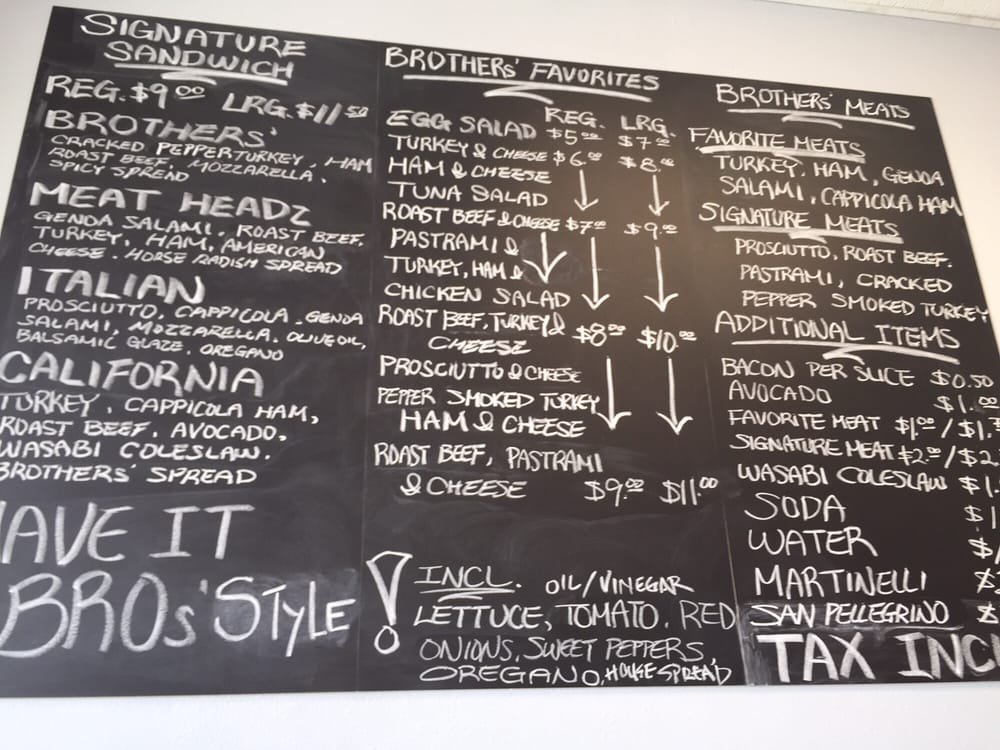 SIGNATURE
SANDWICH
REG. $9.00 LRG. $11.50
BROTHERS'
CRACKED PEPPERTURKEY, HAM
ROAST BEEF, MOZZARELLA.
SPICY SPREAD
MEAT HEADZ
GENOA SALAMI, ROAST BEEF,
TURKEY, HAM, AMERICAN
CHEESE. HORSE RADISH SPREAD
ITALIAN
PROSCIUTTO, CAPPICOLA, GENOA
SALAMI, MOZZARELLA, OLIVE OIL,
BALSAMIC GLAZE, OREGANO
CALIFORNIA
TURKEY, CAPPICOLA HAM,
ROAST BEEF, AVOCADO,
WASABI COLESLAW.
BROTHERS' SPREAD
AVE IT
BROs' STYLE
BROTHERS' FAVORITES
REG. LRG.
EGG SALAD $5.00 $7.00
TURKEY & CHEESE $6.00 $8.00
HAM & CHEESE
TUNA SALAD
ROAST BEEF & CHEESE $7.00 $9.00
PASTRAMI &
TURKEY, HAM &
CHICKEN SALAD
ROAST BEEF, TURKEY &
CHEESE $8.00 $10.00
PROSCIUTTO & CHEESE
PEPPER SMOKED TURKEY
HAM & CHEESE
ROAST BEEF, PASTRAMI
& CHEESE $9.00 $11.00
! INCL. OIL/VINEGAR
LETTUCE, TOMATO, RED
ONIONS, SWEET PEPPERS,
OREGANO, HOUSE SPREAD
BROTHERS' MEATS
FAVORITE MEATS
TURKEY, HAM, GENOA
SALAMI, CAPPICOLA HAM
SIGNATURE MEATS
PROSCIUTTO, ROAST BEEF.
PASTRAMI, CRACKED
PEPPER SMOKED TURKEY
ADDITIONAL ITEMS
BACON PER SLICE $0.50
AVOCADO $1.00
FAVORITE MEAT $1.00/$1.
SIGNATURE MEAT $2.00/$2.
WASABI COLESLAW $1.
SODA $1
WATER $1
MARTINELLI $
SAN PELLEGRINO $
TAX INC